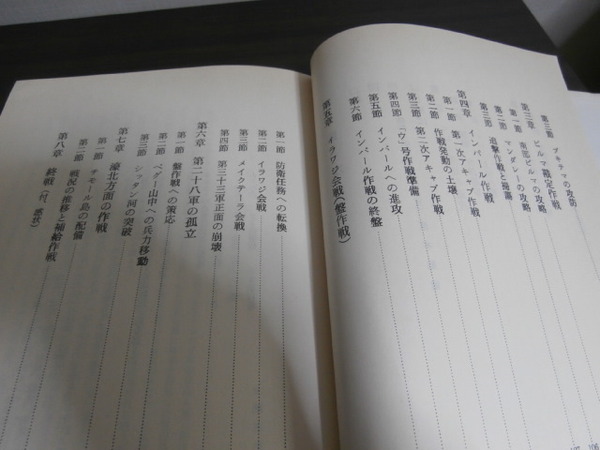 第三節 ブキテマの攻防
第三章 ビルマ戡定作戦
第一節 南部ビルマの攻略
第二節 マンダレーの攻略
第三節 追撃作戦と掃蕩
第四章 インパール作戦
第一節 第一次アキャブ作戦
第二節 作戦発動の土壌
第三節 第二次アキャブ作戦
第四節 「ウ」号作戦準備
第五節 インパールへの進攻
第六節 インパール作戦の終盤
第五章 イラワジ会戦(盤作戦)
第一節 防衛任務への転換
第二節 イラワジ会戦
第三節 メイクテーラ会戦
第四節 第三十三軍正面の崩壊
第六章 第二十八軍の孤立
第一節 盤作戦への策応
第二節 ペグー山中への兵力移動
第三節 シッタン河の突破
第七章 濠北方面の作戦
第一節 チモール島の配備
第二節 戦況の推移と補給作戦
第八章 終戦